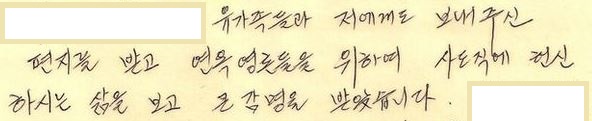 유가족들과 저에게도 보내주신
편지를 받고 연옥영혼들을 위하여 사도직에 헌신
하시는 삶을 보고 큰 감명을 받았습니다.